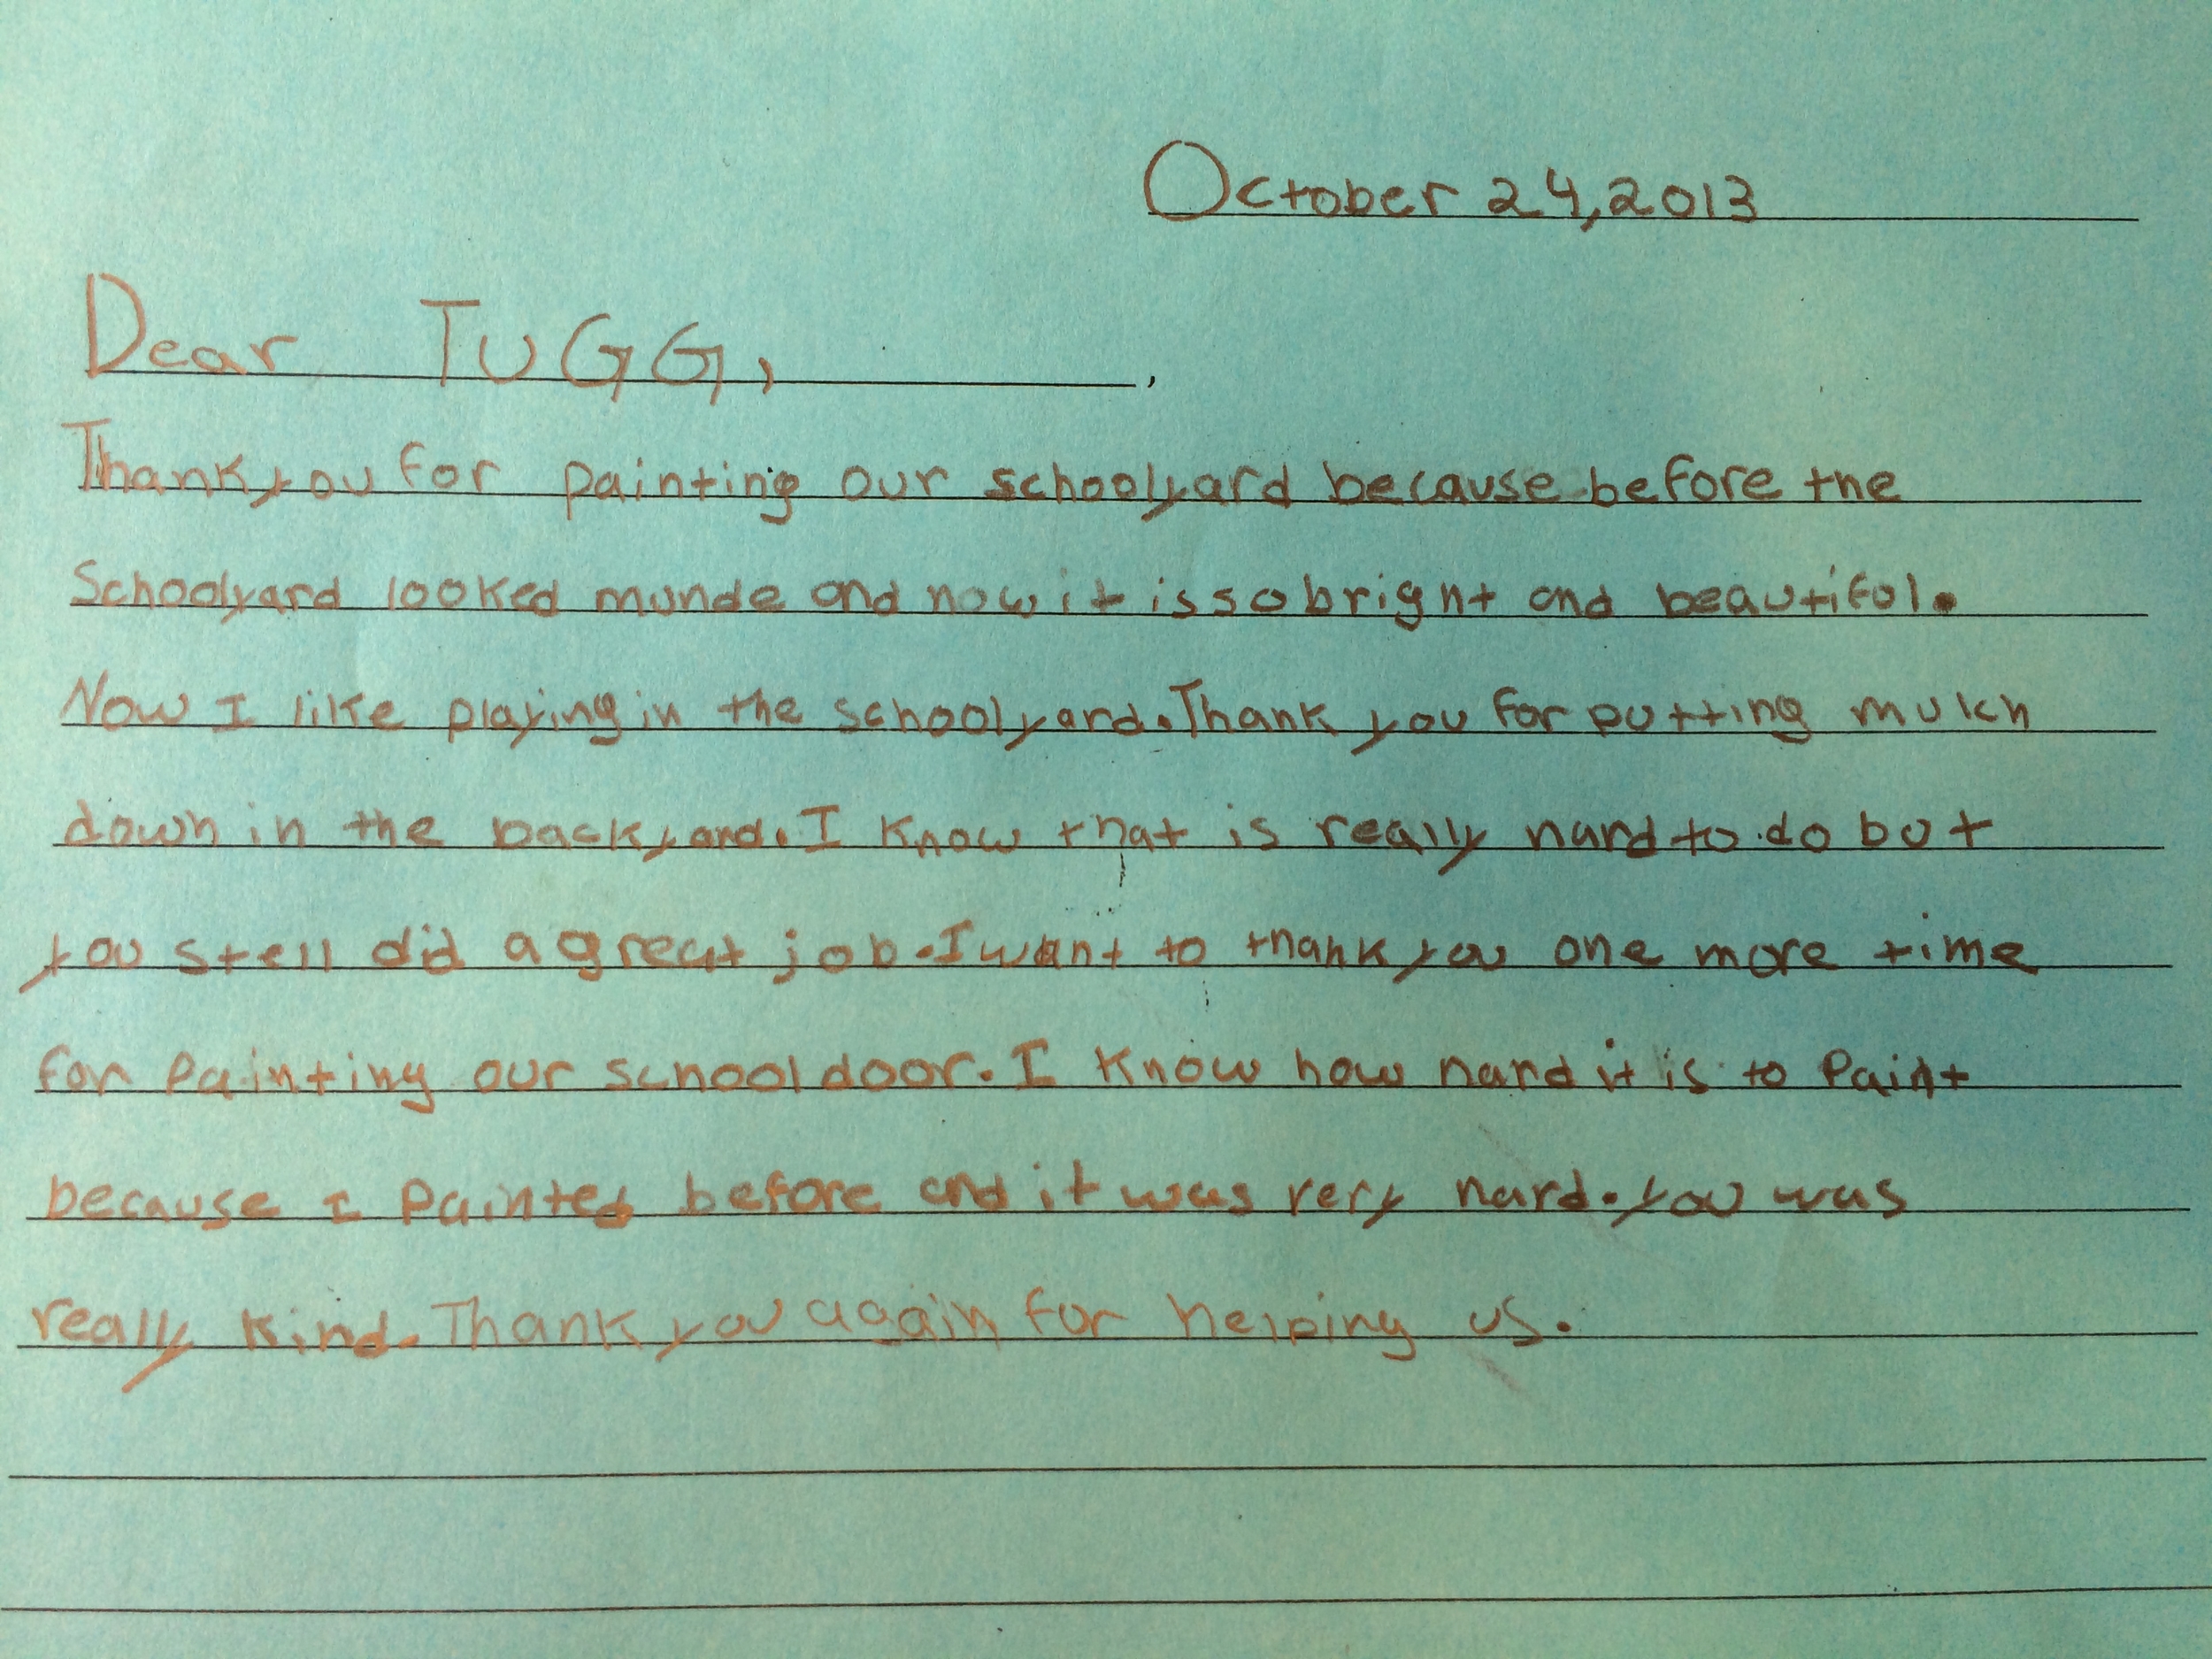 October 24, 2013
Dear TUGG,
Thank you for painting our schoolyard because before the
Schoolyard looked munde and now it is so bright and beautifol.
Now I like playing in the schoolyard. Thank you for putting mulch
down in the backyard. I know that is really hard to do but
you stell did a great job. I want to thank you one more time
for painting our school door. I know how hard it is to paint
because I painted before and it was very hard. you was
really kind. Thank you again for helping us.